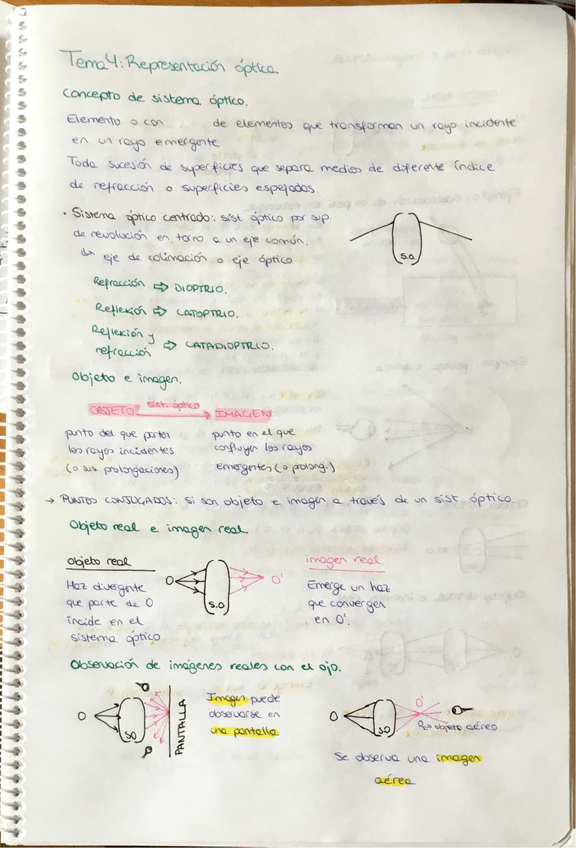 Tema 4: Representación óptica.
Concepto de sistema óptico.
Elemento o con de elementos que transforman un rayo incidente
en un rayo emergente
Toda sucesión de superficies que separa medios de diferente índice
de refracción o superficies espejadas.
· Sistema óptico centrado: sist óptico por sup
de revolución en torno a un eje común.
eje de colimación o eje óptico
S.O.
Refracción ⇒ DIOPTRIO.
Reflexión ⇒ CATOPTRIO.
Reflexión y
refracción ⇒ CATADIOPTRIO.
Objeto e imagen.
OBJETO sist. óptico → IMAGEN
punto del que parten
los rayos incidentes
(o sus prolongaciones)
punto en el que
confluyen los rayos
emergentes (o prolong.)
→ PUNTOS CONJUGADOS: si son objeto e imagen a través de un sist. óptico.
Objeto real e imagen real
Objeto real
Haz divergente
que parte de O
incide en el
sistema óptico
O
S.O
O'
imagen real
Emerge un haz
que convergen
en O'.
Observación de imágenes reales con el ojo.
O
SO
PANTALLA
Imagen puede
observarse en
una pantalla
O
SO
O'
objeto aéreo
Se observa una imagen
aérea